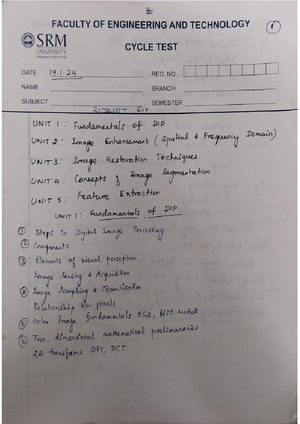 FACULTY OF ENGINEERING AND TECHNOLOGY
SRM
UNIVERSITY
CYCLE TEST
1
DATE 19.1.24
REG NO.
NAME
BRANCH
SUBJECT
SEMESTER
DIP
UNIT 1 : Fundamentals of DIP
UNIT 2 : Image Enhancement (Spatial & Frequency Domain)
UNIT 3 : Image Restoration Techniques
UNIT 4 : Concepts of Image Segmentation
UNIT 5 : Feature Extraction
UNIT 1 : Fundamentals of DIP
1 Steps in Digital Image Processing
2 Components
3 Elements of visual perception
Image Sensing & Acquisition
4 Image Sampling & Quantization
Relationship b/w pixels
5 Color Image fundamentals RGB, HSI models
6 Two dimensional mathematical preliminaries
2D transforms DFT, DCT.